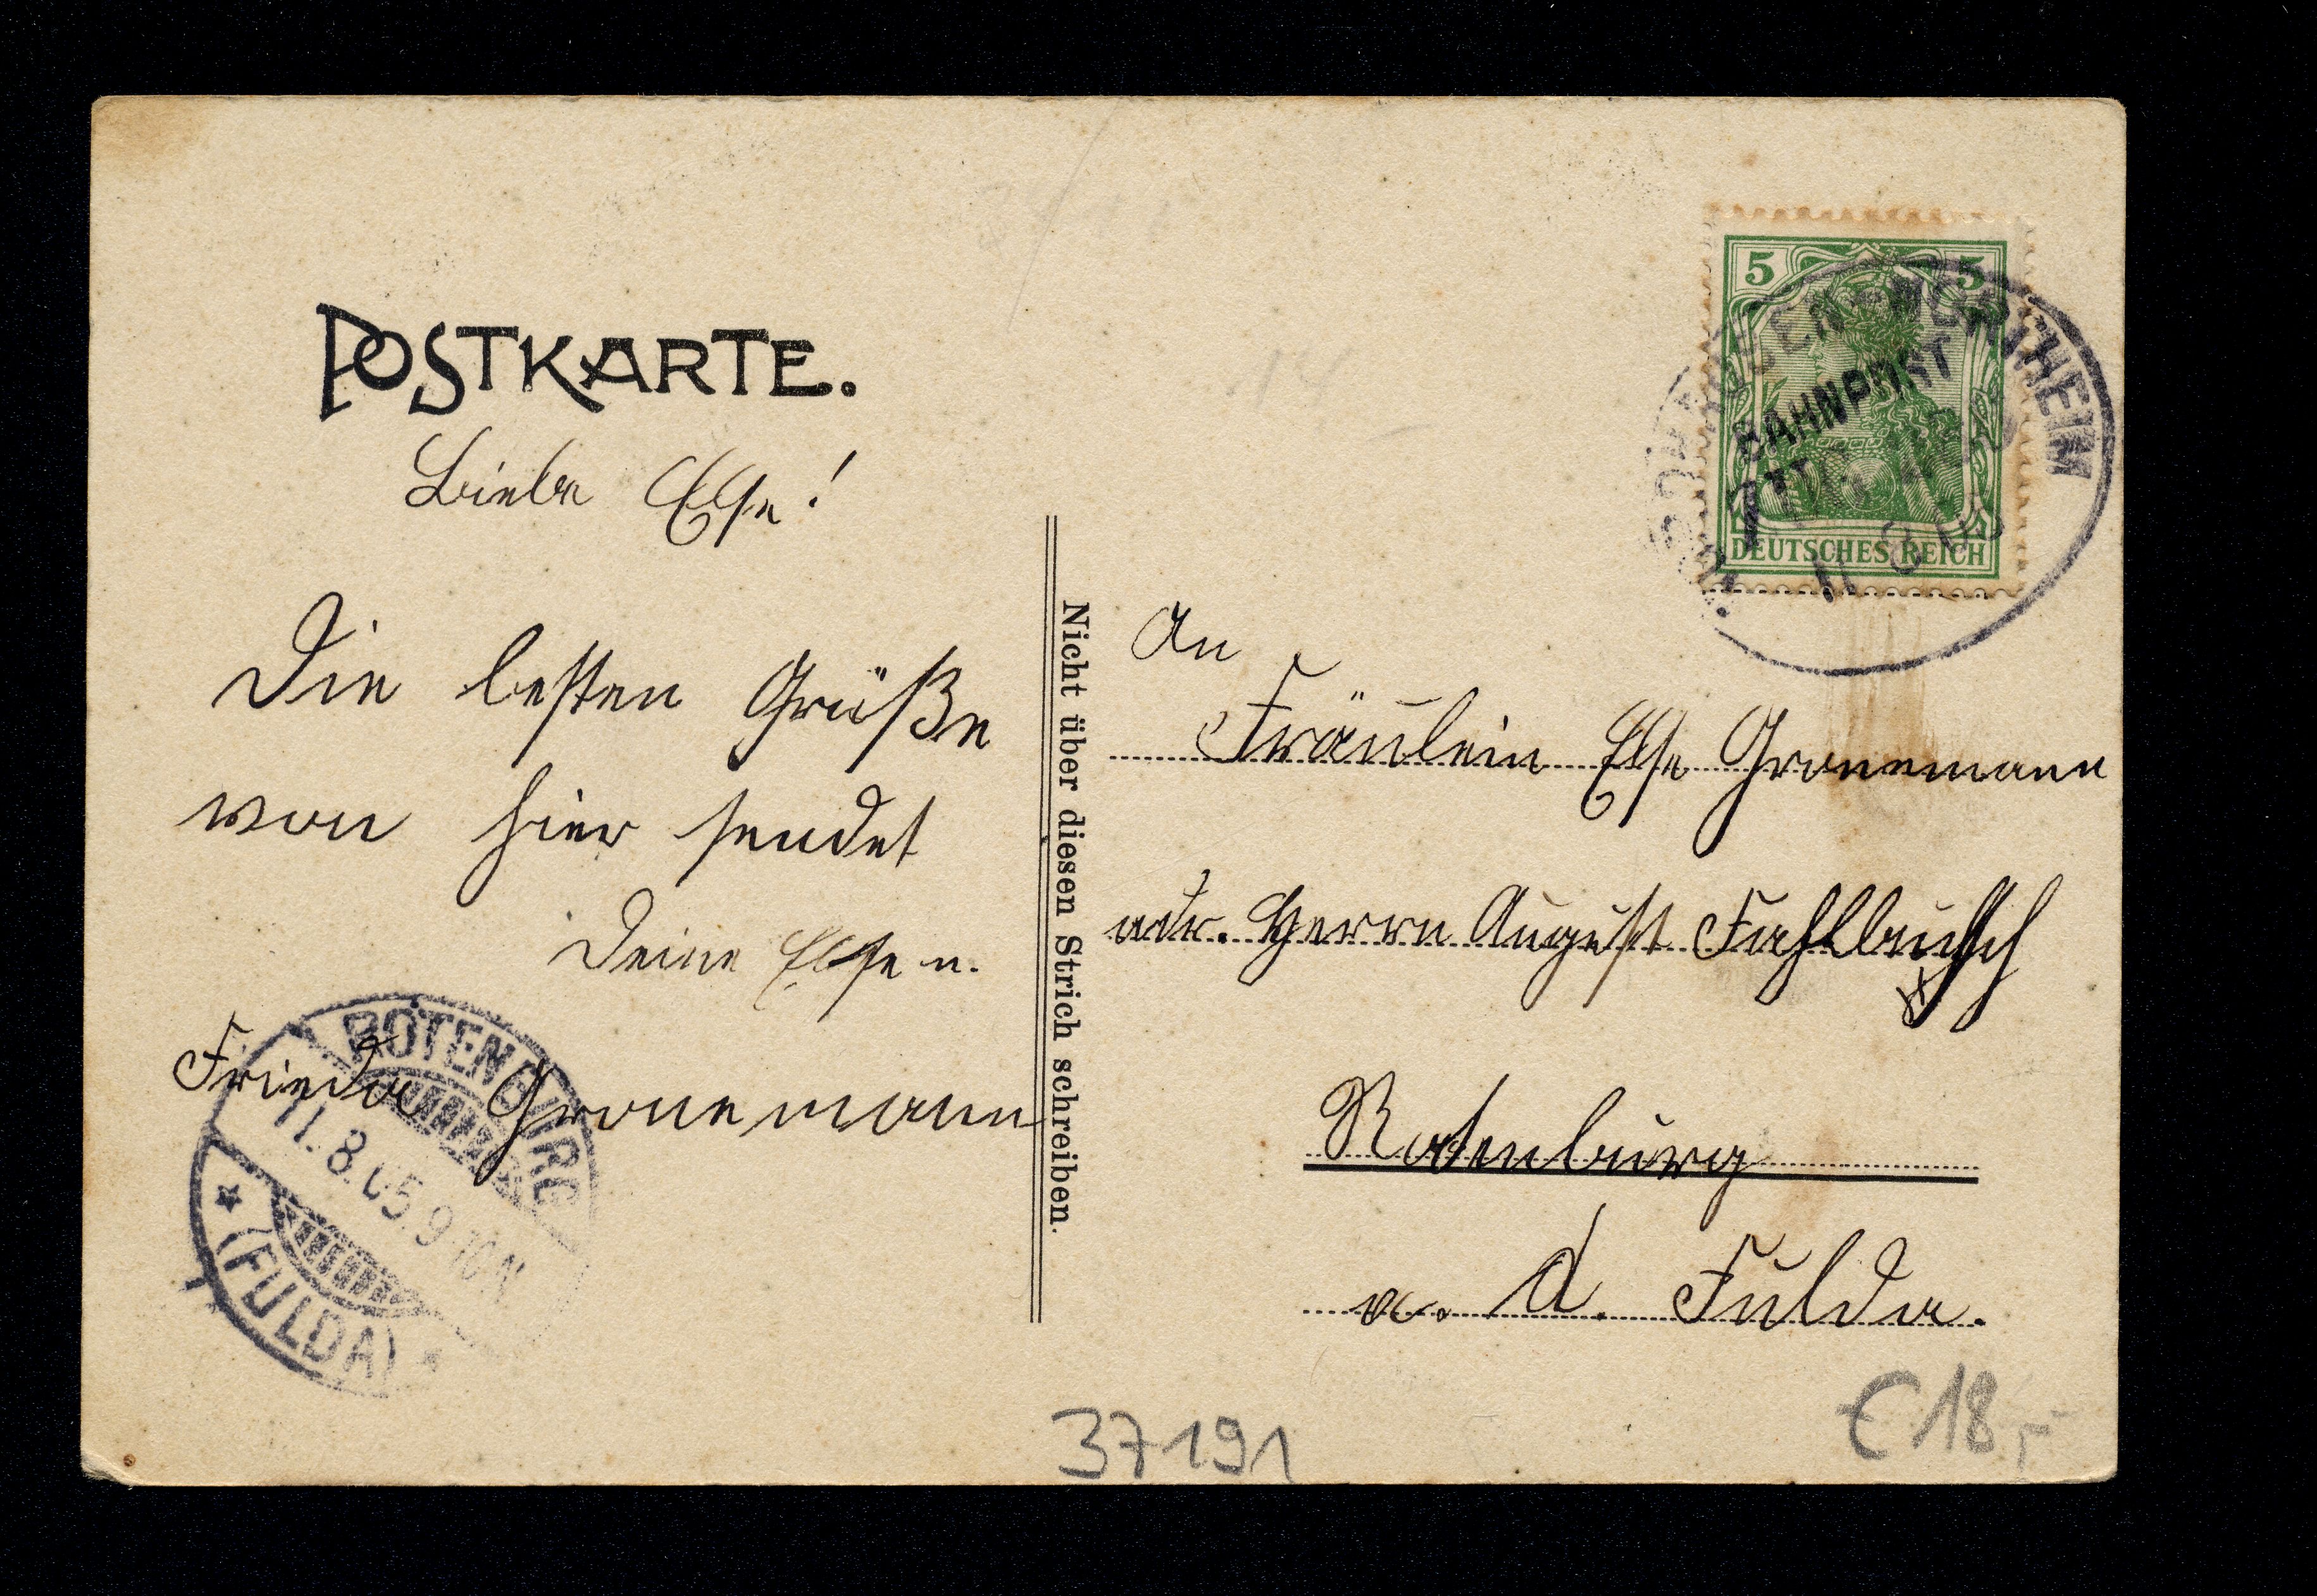 POSTKARTE.
Liebe Else!
Die besten Grüße
von hier sendet
Deine Else u.
Frieda Gronemann
Nicht über diesen Strich schreiben.
An
Fräulein Else Gronemann
adr. Herrn August Fahlbusch
Rotenburg
a. d. Fulda.
5 5
DEUTSCHES REICH
BAHNPOST
ROTENBURG
11.8.05.9-10N
(FULDA)
37191
€ 18,-